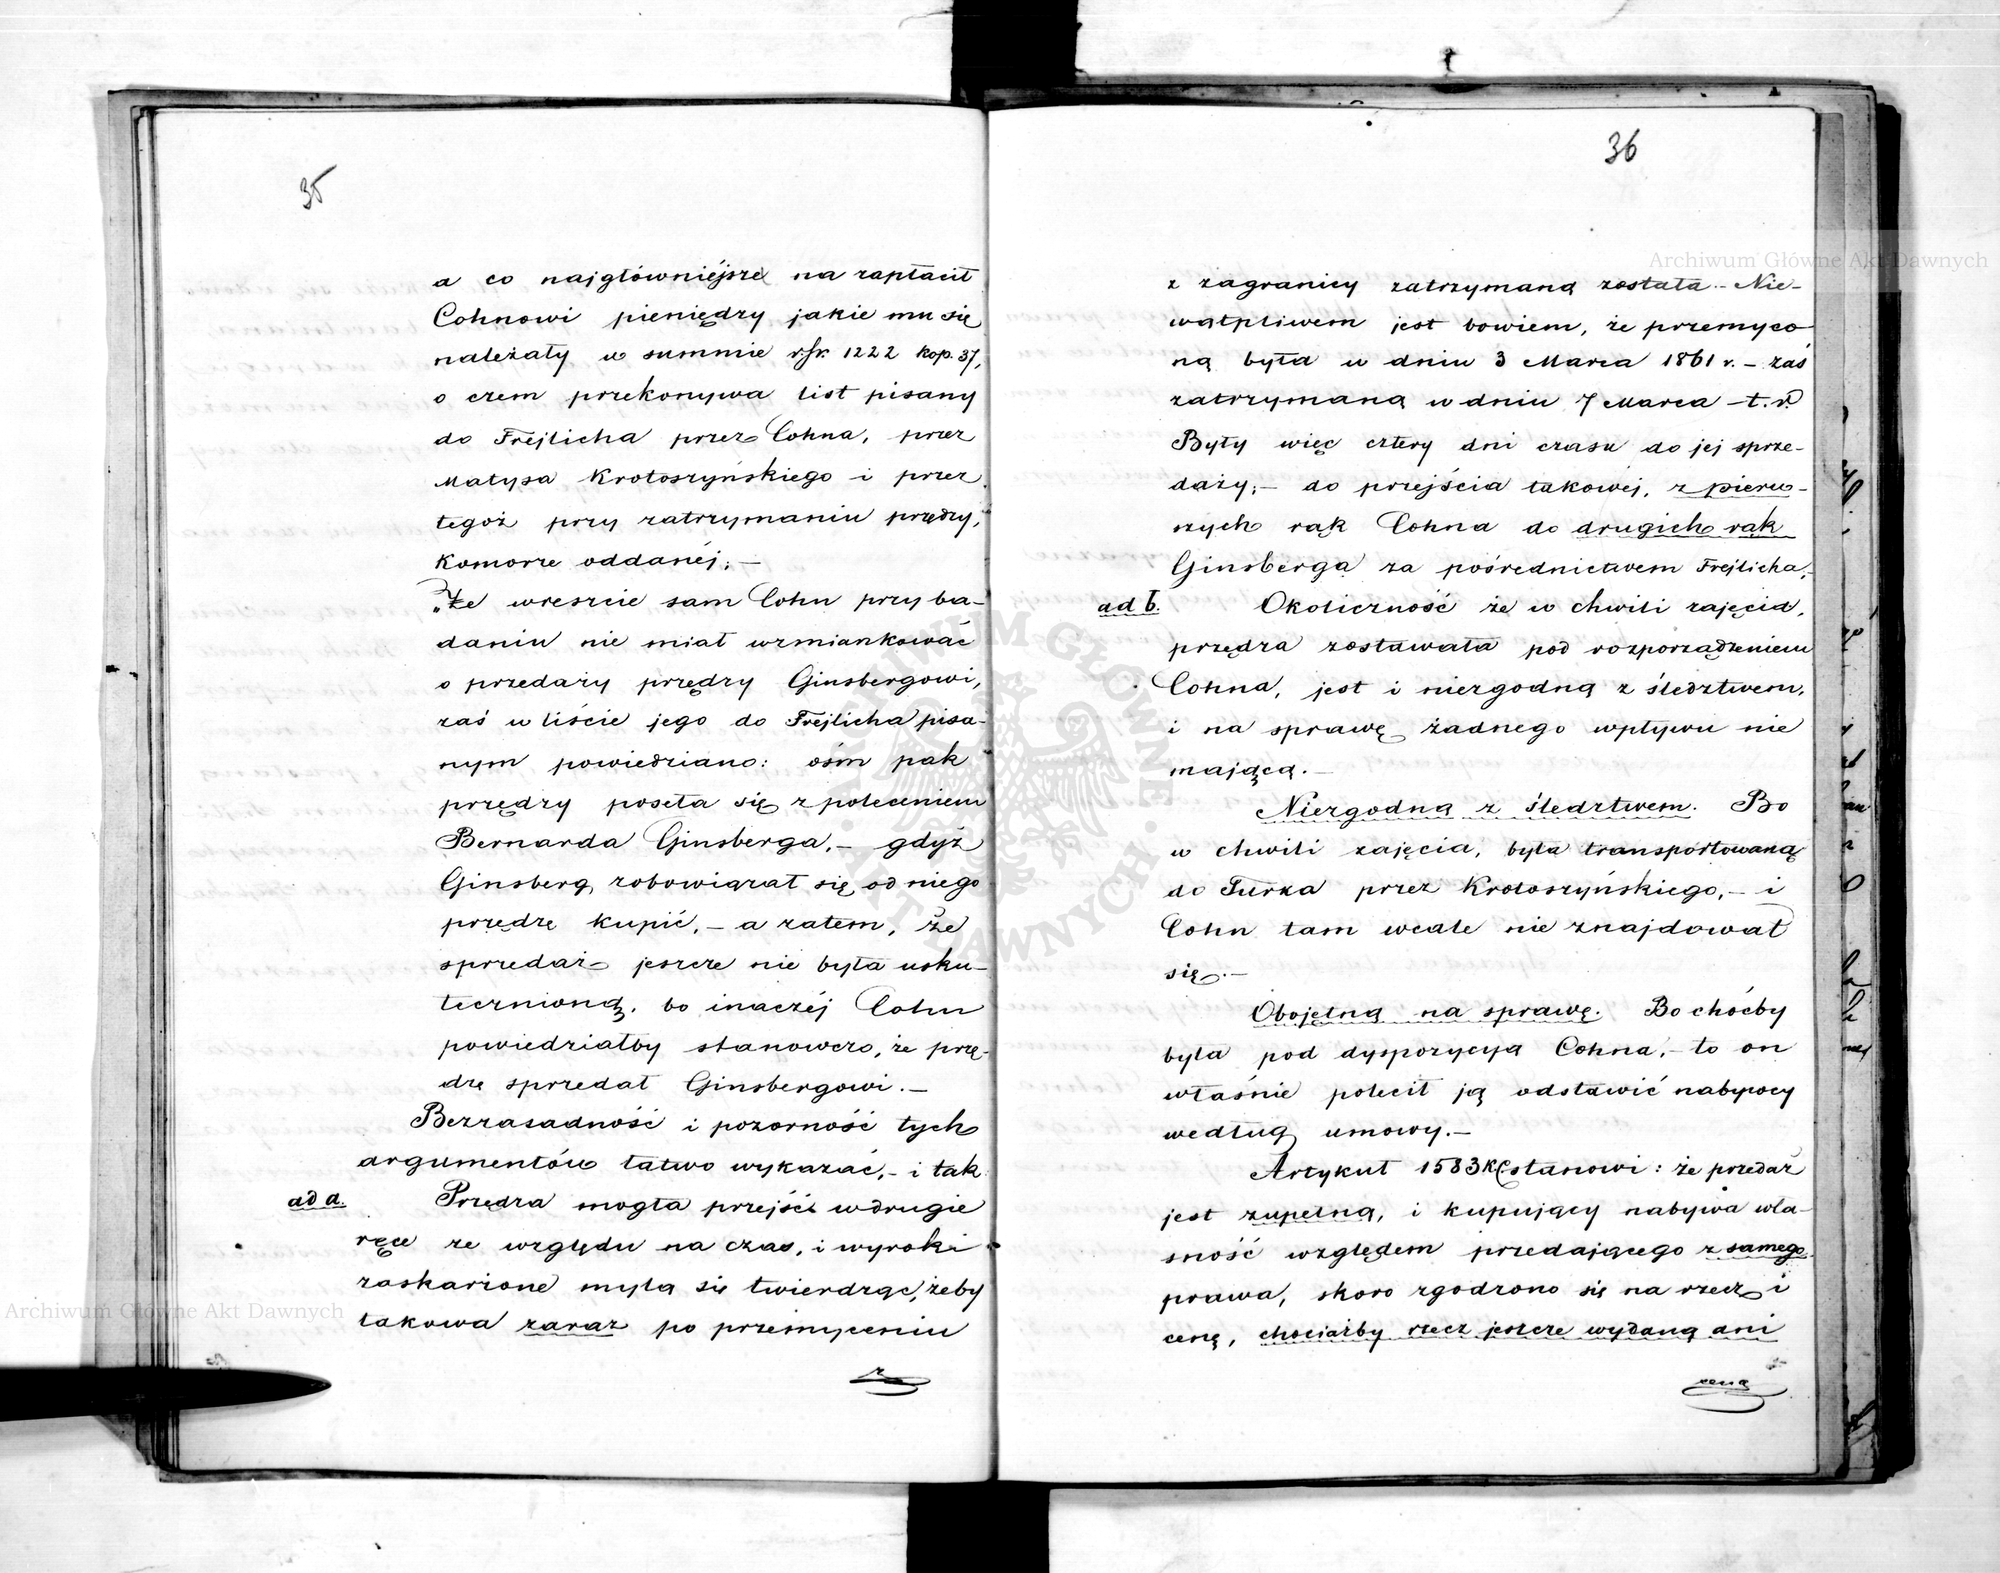 35
a co najgłówniéjsze na zapłacił
Cohnowi pieniędzy jakie mu się
należały w summie rsr. 1222 kop. 37,
o czem przekonywa list pisany
do Frejlicha przez Cohna, przez
Matysa Krotoszyńskiego i przez
tegoż przy zatrzymaniu przędzy,
Komorze oddanéj; —
„Że wreszcie sam Cohn przy ba-
daniu nie miał wzmiankować
o przedaży przędzy Ginsbergowi,
zaś w liście jego do Frejlicha pisa-
nym powiedziano: ośm pak
przędzy poseła się z poleceniem
Bernarda Ginsberga, — gdyż
Ginsberg zobowiązał się od niego
przędzę kupić, — a zatem, że
sprzedaż jeszcze nie była usku-
tecznioną, bo inaczéj Cohn
powiedziałby stanowczo, że przę-
dzę sprzedał Ginsbergowi. —
Bezzasadność i pozorność tych
argumentów łatwo wykazać, — i tak:
ad a. Przędza mogła przejść w drugie
ręce ze względu na czas, i wyroki
zaskarżone mylą się twierdząc, żeby
takowa zaraz po przemyceniu
z
36
z zagranicy zatrzymaną została. — Nie-
wątpliwem jest bowiem, że przemyco-
ną była w dniu 3 Marca 1861 r. — zaś
zatrzymaną w dniu 7 Marca t. r.
Były więc cztery dni czasu do jej sprze-
daży; — do przejścia takowéj, z pierw-
szych rąk Cohna do drugich rąk
Ginsberga za pośrednictwem Frejlicha, —
ad b. Okoliczność że w chwili zajęcia,
przędza zostawała pod rozporządzeniem
Cohna, jest i niezgodną z śledztwem,
i na sprawę żadnego wpływu nie
mającą. —
Niezgodną z śledztwem. Bo
w chwili zajęcia, była transportowaną
do Turka przez Krotoszyńskiego, — i
Cohn tam wcale nie znajdował
się. —
Obojętną na sprawę. Bo choćby
była pod dyspozycyą Cohna, — to on
właśnie polecił ją odstawić nabywcy
według umowy. —
Artykuł 1583 KC stanowi: że przedaż
jest zupełną, i kupujący nabywa wła-
sność względem przedającego z samego
prawa, skoro zgodzono się na rzecz i
cenę, chociażby rzecz jeszcze wydaną ani
ceną
Archiwum Główne Akt Dawnych
Archiwum Główne Akt Dawnych
ARCHIWUM GŁÓWNE AKT DAWNYCH